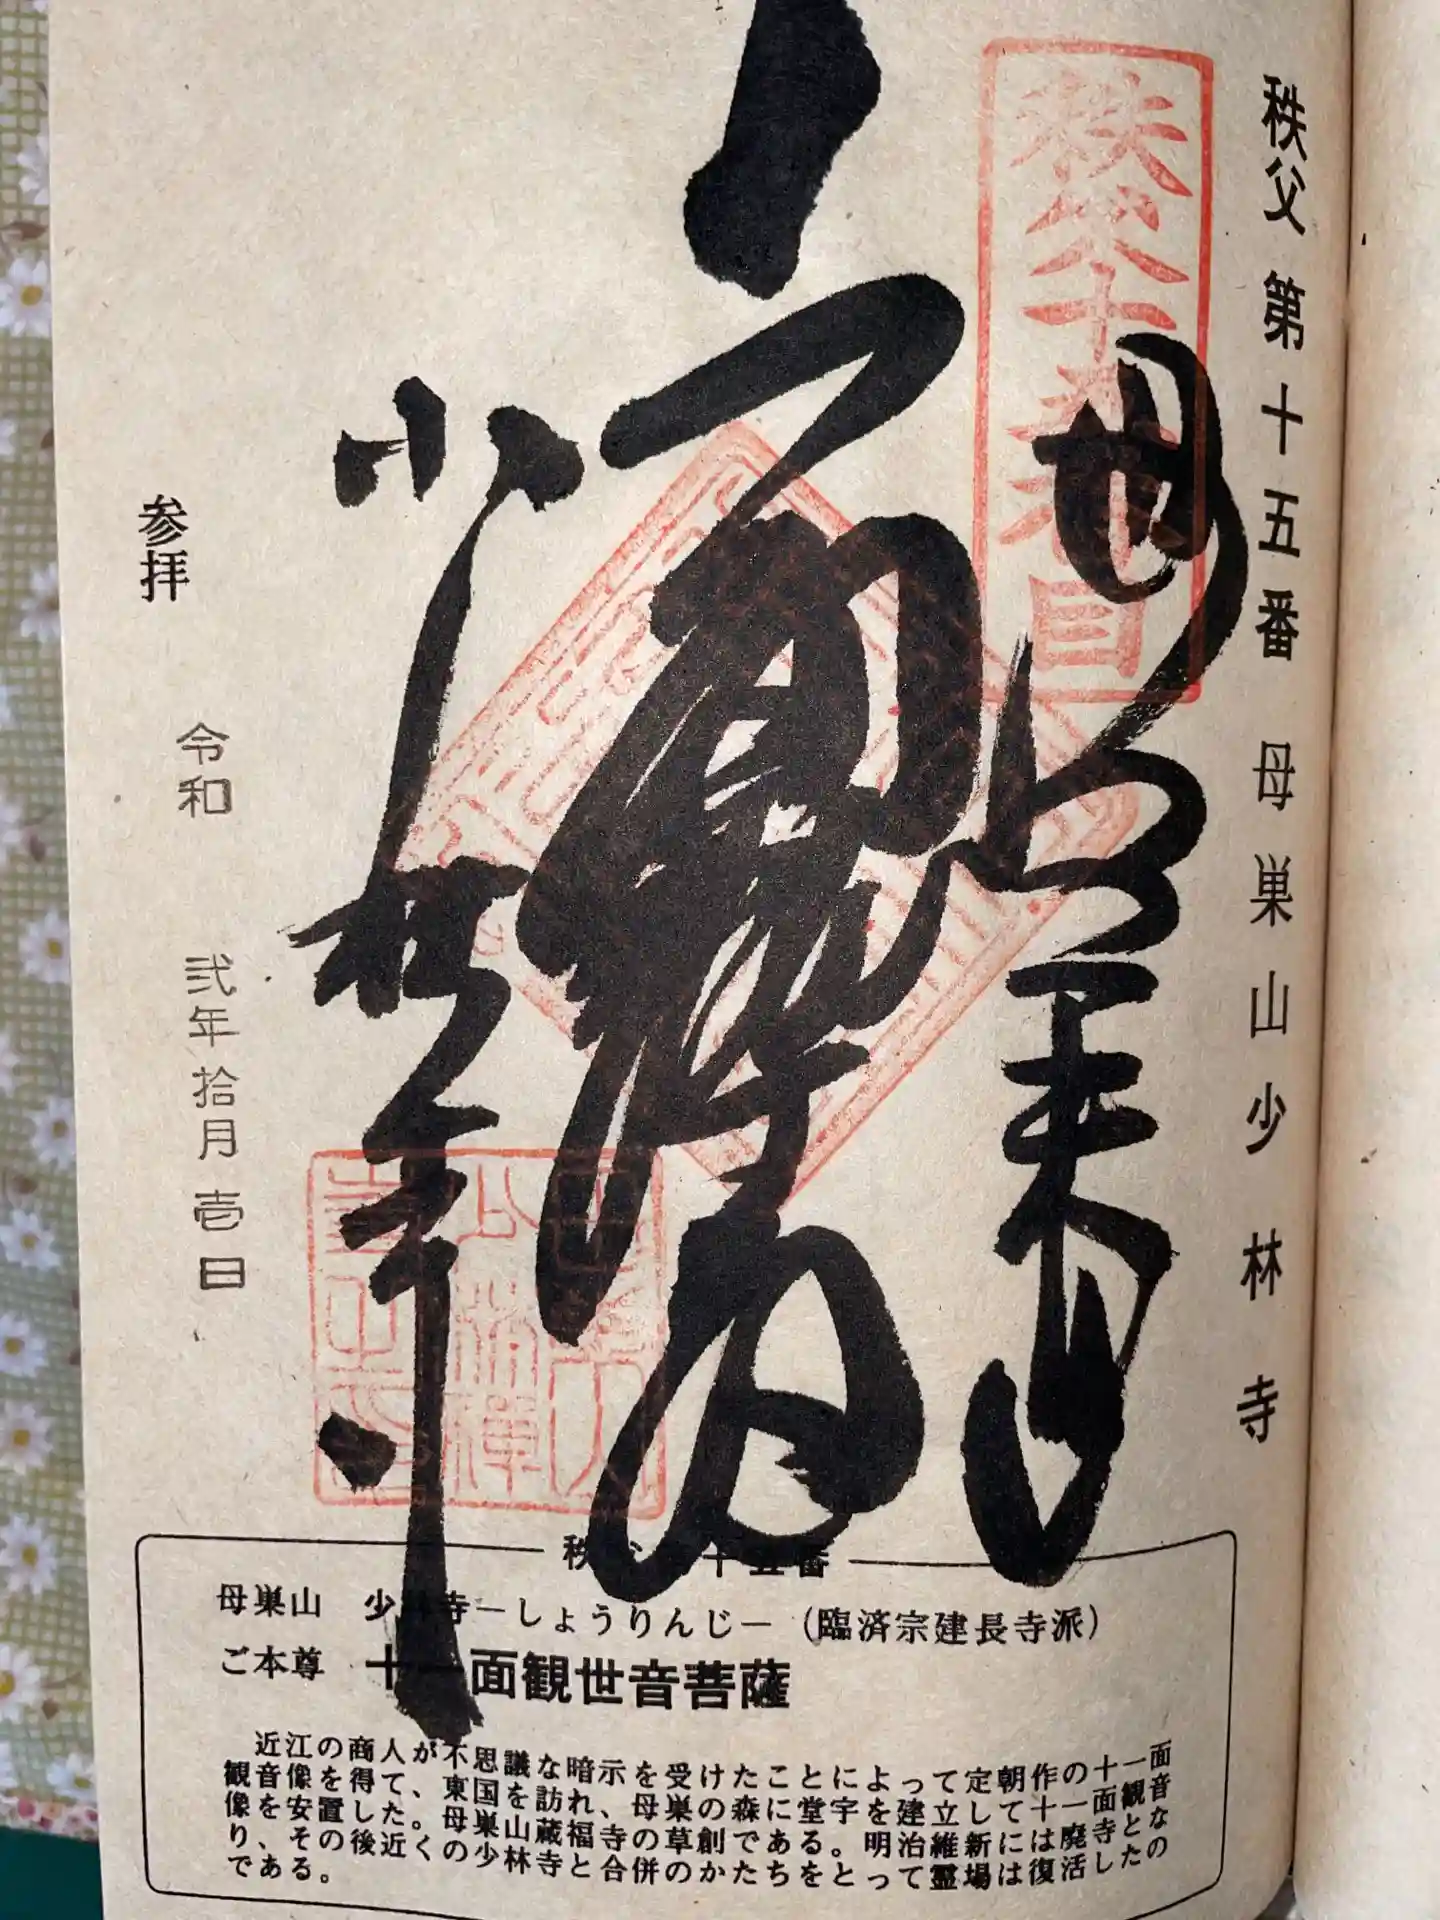 秩父 第十五番 母巣山少林寺
秩父十五番目
母巣山
少林寺
参拝 令和 弐年拾月壱日
十五番
母巣山 少林寺－しょうりんじ－（臨済宗建長寺派）
ご本尊 十一面観世音菩薩
近江の商人が不思議な暗示を受けたことによって定朝作の十一面
観音像を得て、東国を訪れ、母巣の森に堂宇を建立して十一面観音
像を安置した。母巣山蔵福寺の草創である。明治維新には廃寺とな
り、その後近くの少林寺と合併のかたちをとって霊場は復活したの
である。